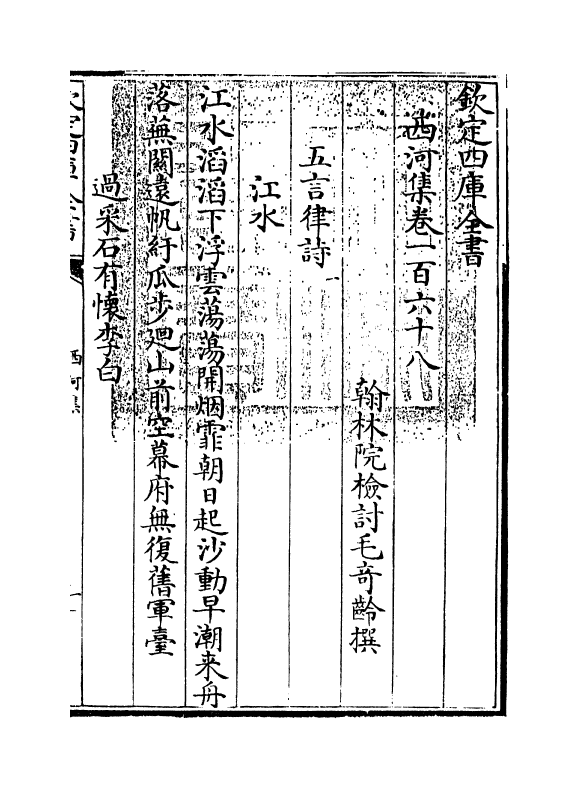 欽定四庫全書
西河集卷一百六十八
翰林院檢討毛奇齡撰
五言律詩一
江水
江水滔滔下浮雲蕩蕩開烟霏朝日起沙動早潮來舟
落蕪關遠帆紆瓜步廻山前空幕府無復舊軍臺
過采石有懷李白
西河集